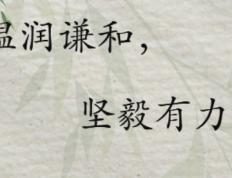 温润谦和，
坚毅有力